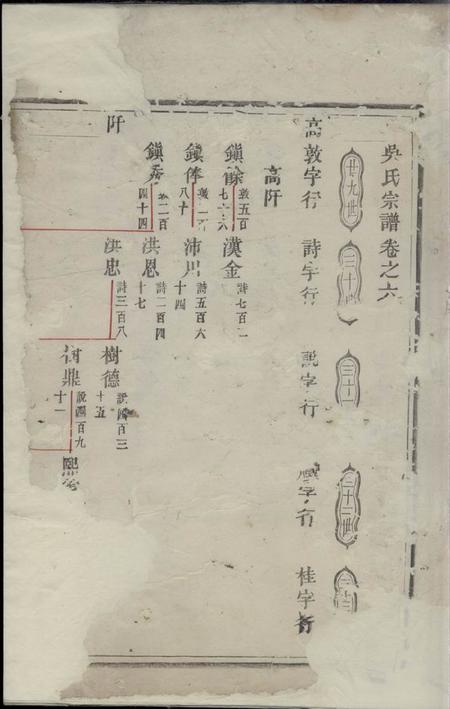 吳氏宗譜卷之六
廿九世
三十
三十一
三十二世
三十三
高敦字行
詩字行
說字行
字行
桂字行
高阡
鎮
敦五百七十六
漢金
詩七百二
鎮偉
敦二百八十
沛川
詩五百六十四
鎮
敦二百四十四
洪恩
詩二百四十七
阡
洪忠
詩三百八
樹德
說四百三十五
樹鼎
說四百九十一
熙